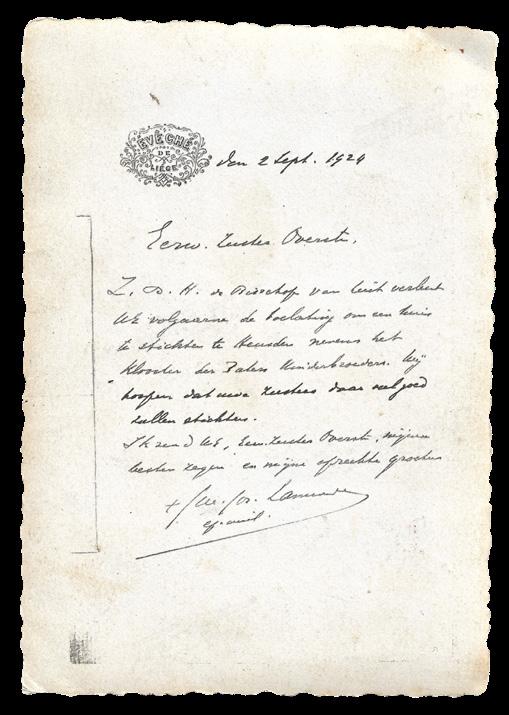 ÉVÊCHÉ
DE
LIÉGE
den 2 Sept. 1924
Eerw. Zuster Overste,
Z. D. H. de Bisschop van Luik verleent
UE volgaarne de toelating om een huis
te stichten te Heusden nevens het
klooster der Paters Minderbroeders. Wij
hoopen dat uwe Zusters daar veel goed
zullen stichten.
Ik zend UE, Eerw. Zuster Overste, mijnen
besten zegen en mijne oprechte groeten
+